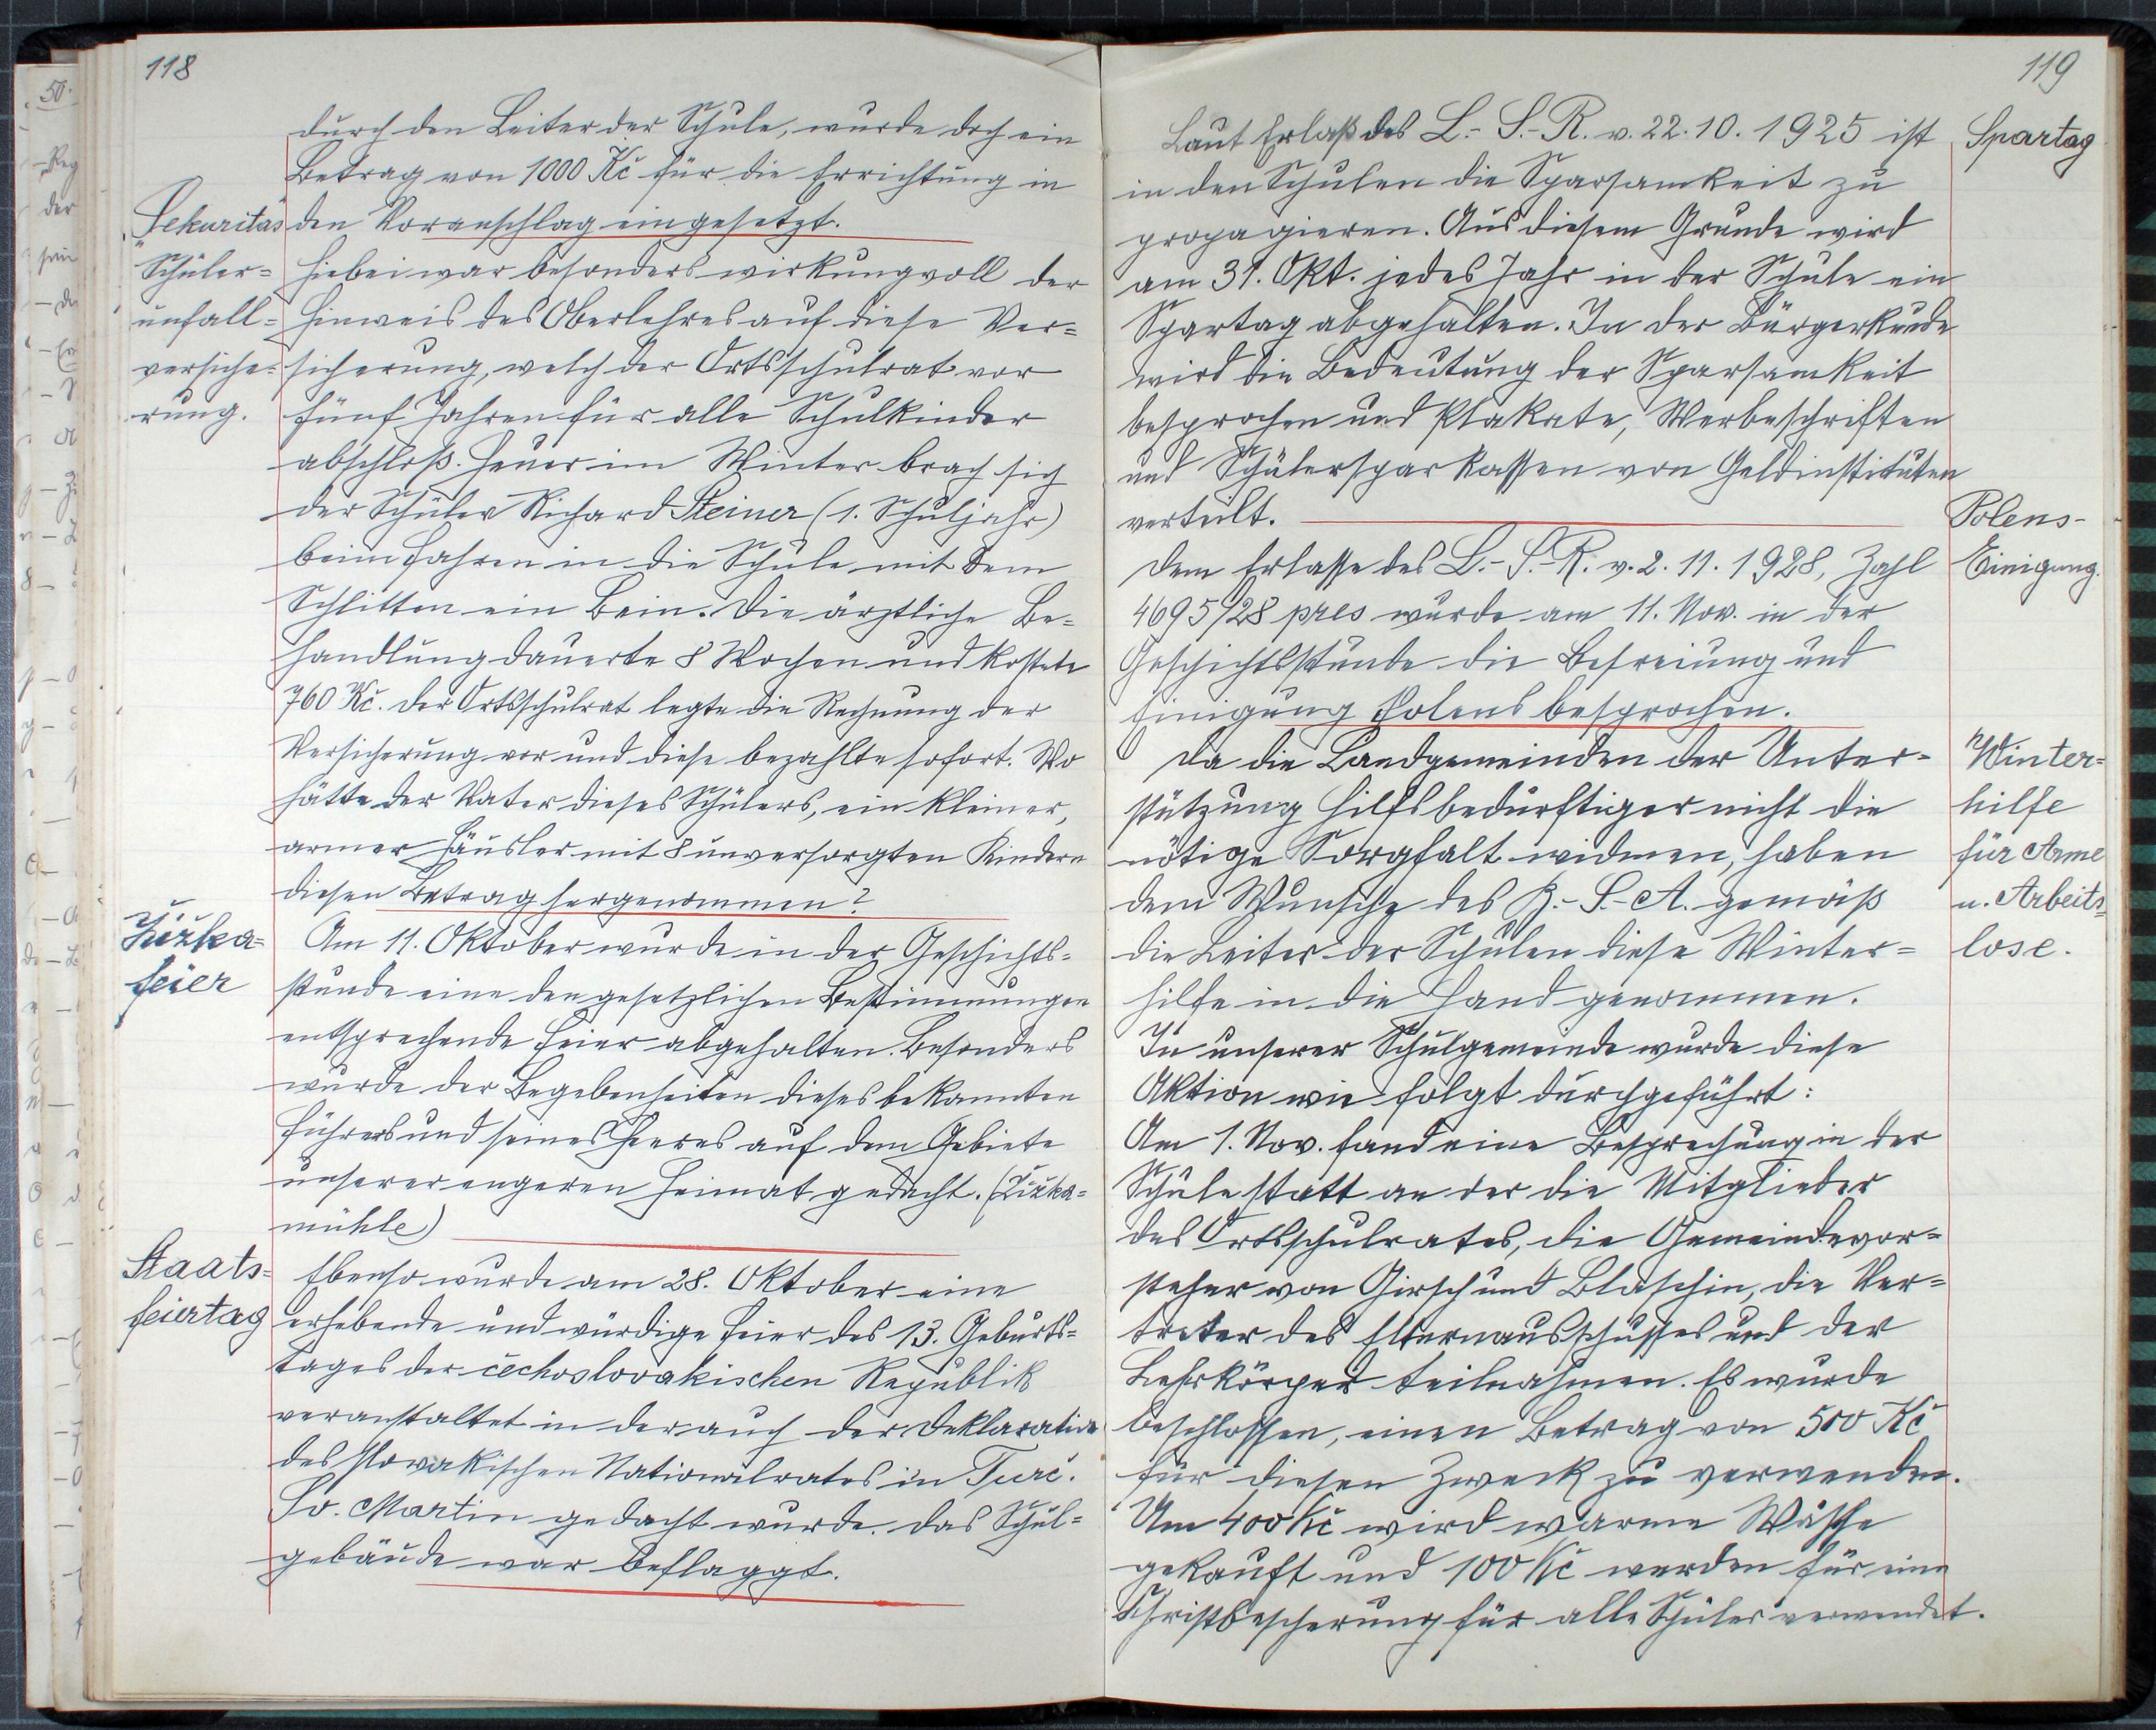 118
durch den Leiter der Schule, wurde doch ein
Betrag von 1000 Kč für die Errichtung in
den Voranschlag eingesetzt.
"Sekuritas"
Schüler=
unfall=
versiche=
rung.
Hiebei war besonders wirkungvoll der
Hinweis des Oberlehres auf diese Ver=
sicherung, welch der Ortsschulrat vor
fünf Jahren für alle Schulkinder
abschloß. Heuer im Winter brach sich
der Schüler Richard Steiner (1. Schuljahr)
beim Fahren in die Schule mit dem
Schlitten ein Bein. Die ärztliche Be=
handlung dauerte 8 Wochen und kostete
760 Kč. Der Ortsschulrat legte die Rechnung der
Versicherung vor und diese bezahlte sofort. Wo
hätte der Vater dieses Schülers, ein kleiner,
armer Häusler mit 8 unversorgten Kindern
diesen Betrag hergenommen?
Žižka=
feier
Am 11. Oktober wurde in der Geschichts=
stunde eine den gesetzlichen Bestimmungen
entsprechende Feier abgehalten. Besonders
wurde der Begebenheiten dieses bekannten
Führers und seines Heeres auf dem Gebiete
unserer engeren Heimat gedacht. (Žižka=
mühle)
Staats=
feiertag
Ebenso wurde am 28. Oktober eine
erhebende und würdige Feier des 13. Geburts=
tages der čechoslovakischen Republik
veranstaltet in der auch der Deklaration
des slovakischen Nationalrates in Turč.
Sv. Martin gedacht wurde. Das Schul=
gebäude war beflaggt.
119
Spartag
Laut Erlaß des L.-S.-R. v. 22.10.1925 ist
in den Schulen die Sparsamkeit zu
propagieren. Aus diesem Grunde wird
am 31. Okt. jedes Jahr in der Schule ein
Spartag abgehalten. In der Bürgerkunde
wird die Bedeutung der Sparsamkeit
besprochen und Plakate, Werbeschriften
und Schülersparkassen von Geldinstituten
verteilt.
Polens-
Einigung.
Dem Erlasse des L.-S.-R. v. 2.11.1928, Zahl
4695/28 pres wurde am 11. Nov. in der
Geschichtsstunde die Befreiung und
Einigung Polens besprochen.
Winter=
hilfe
für Arme
u. Arbeits=
lose.
Da die Landgemeinden der Unter=
stützung Hilfsbedürftiger nicht die
nötige Sorgfalt widmen, haben
dem Wunsche des B.-S.-A. gemäß
die Leiter der Schulen diese Winter=
hilfe in die Hand genommen.
In unserer Schulgemeinde wurde diese
Aktion wie folgt durchgeführt:
Am 1. Nov. fand eine Besprechung in der
Schule statt an der die Mitglieder
des Ortsschulrates, die Gemeindevor=
steher von Girsch und Blaschin, die Ver=
treter des Elternausschusses und der
Lehrkörper teilnahmen. Es wurde
beschlossen, einen Betrag von 500 Kč
für diesen Zweck zu verwenden.
Um 400 Kč wird warme Wäsche
gekauft und 100 Kč werden für eine
Christbescherung für alle Schüler verwendet.